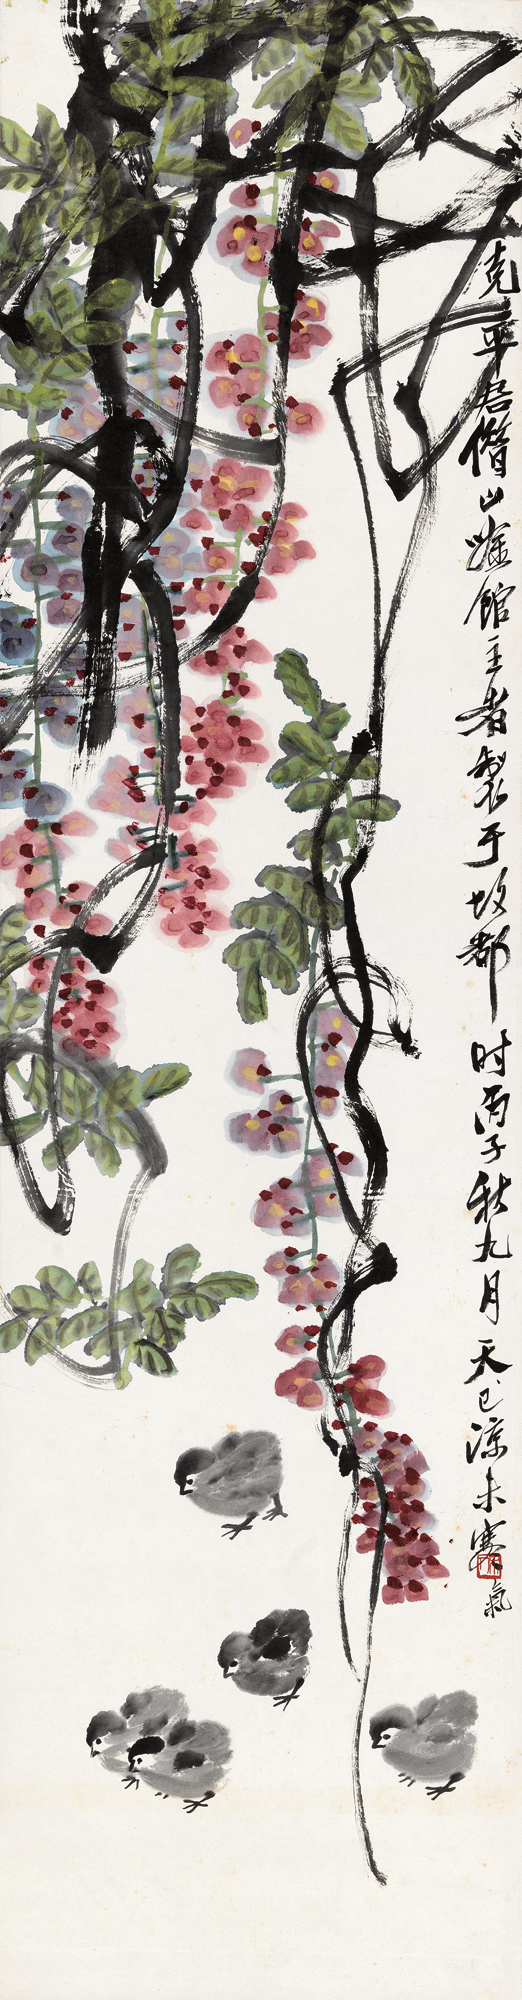 克平君借山唫館主者製于故都时丙子秋九月天已涼未寒氣